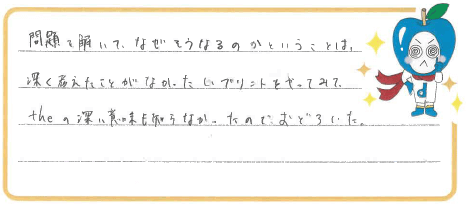 問題を解いて、なぜそうなるのかということは、
深く考えたことがなかったしプリントをやってみて、
theの深い意味も知らなかったのでおどろいた。